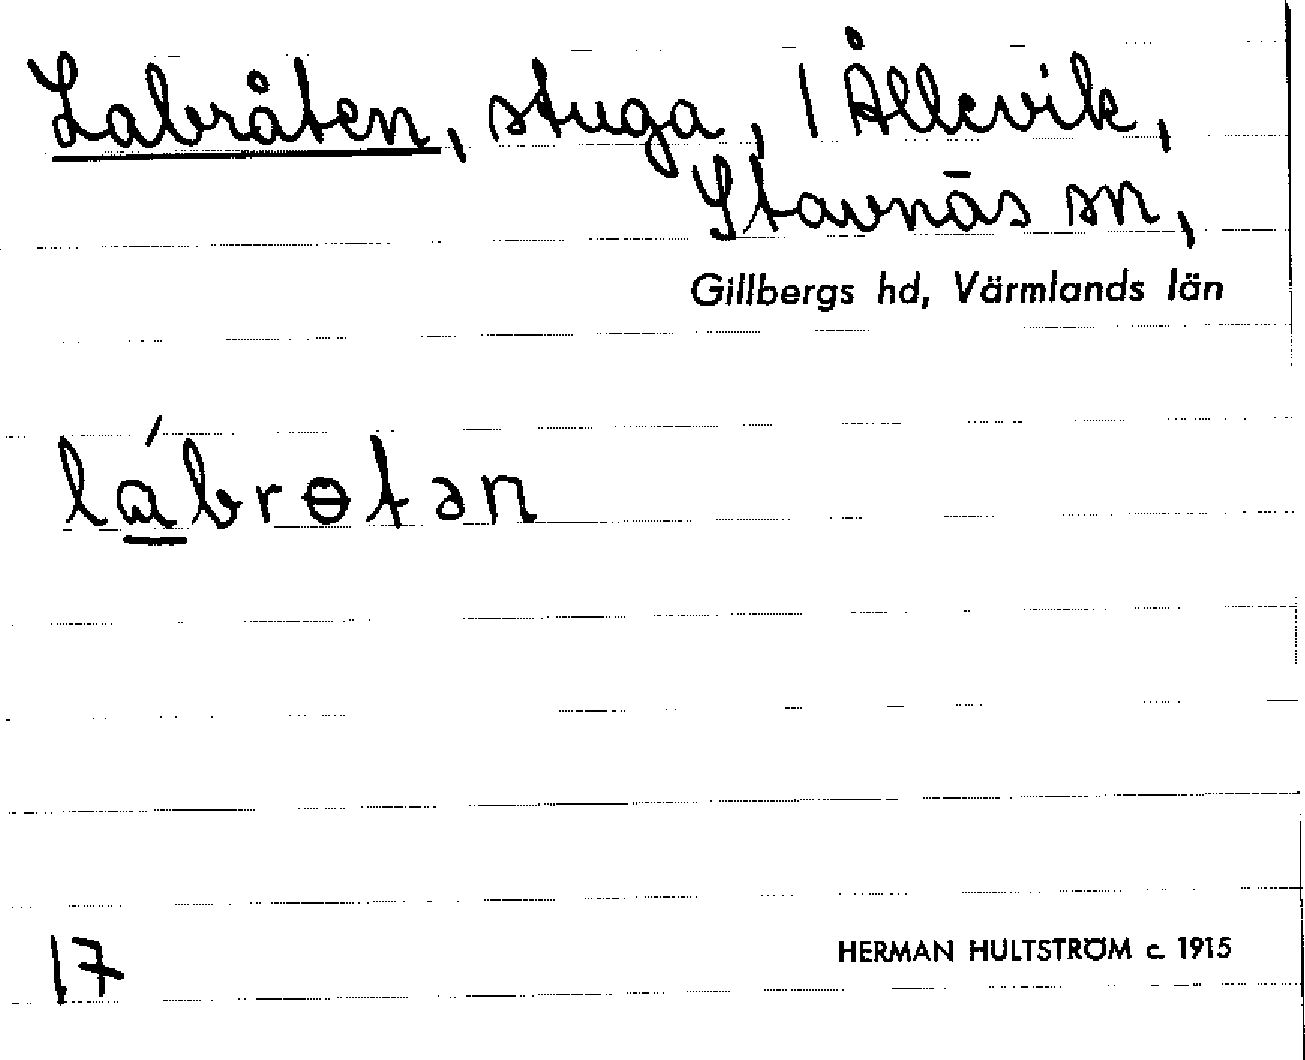 Labråten, stuga, / Ållevik,
Stavnäs sn,
Gillbergs hd, Värmlands län
lá̱brɵtən
17
HERMAN HULTSTRÖM c. 1915